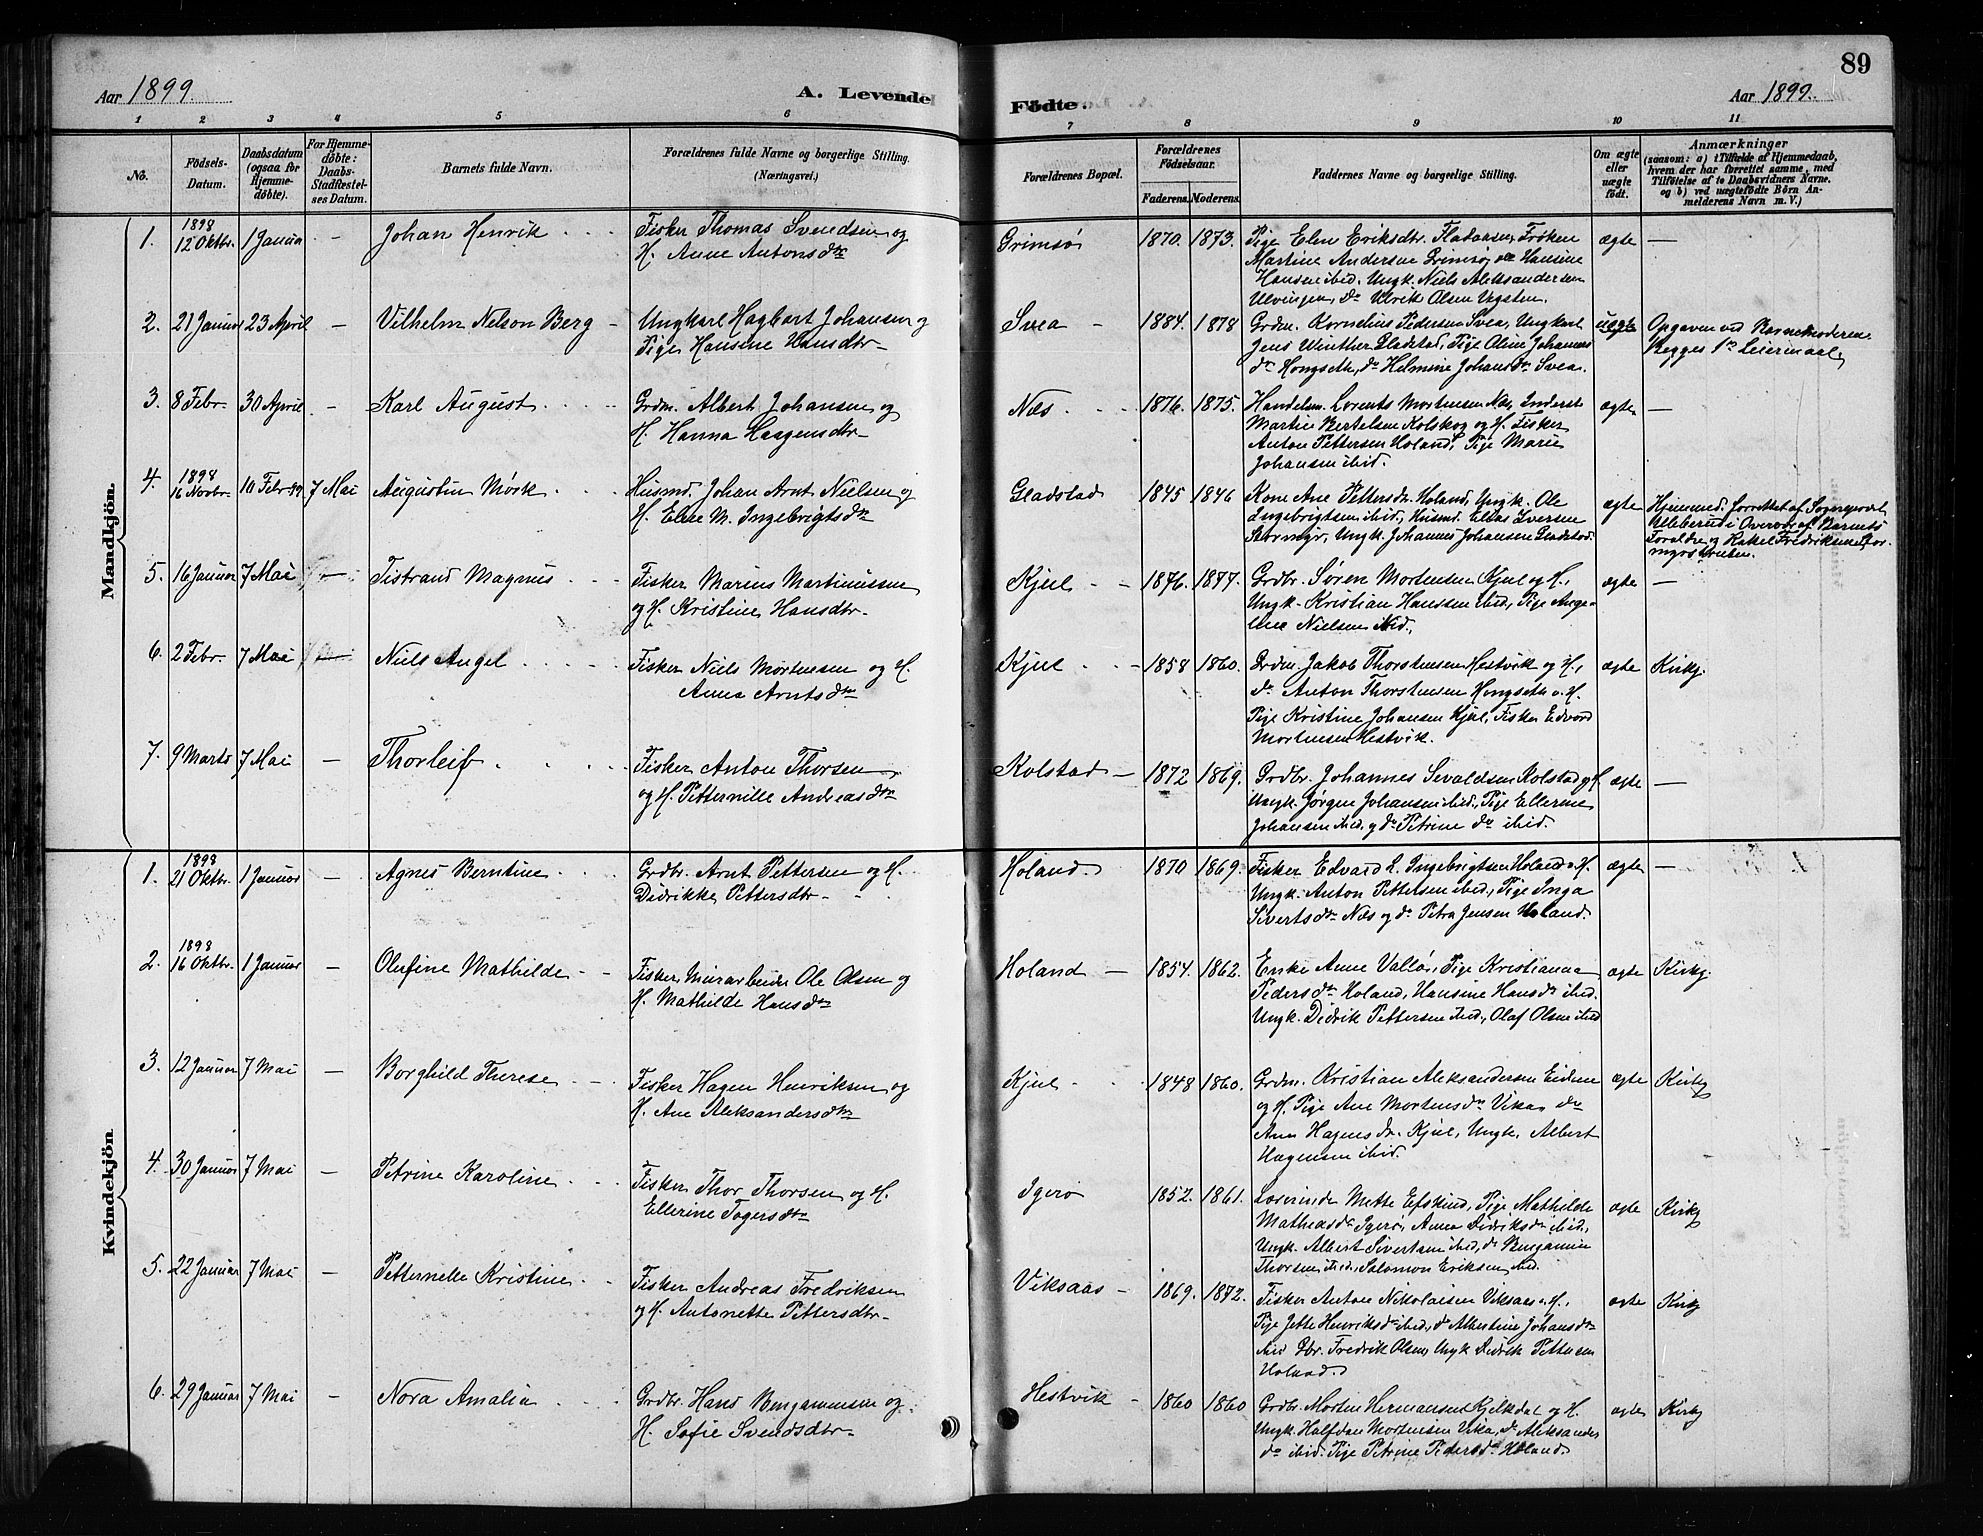 Aar 1899.
A. Levende
1 2 3 4 5 6
No.
Fødsels-Datum.
Daabsdatum (ogsaa for Hjemme-døbte).
For Hjemme-døbte: Daabs-Stadfæstel-ses Datum.
Barnets fulde Navn.
Forældrenes fulde Navne og borgerlige Stilling.
(Næringsvei.)
Mandkjön.
1. 1898 12 Oktbr. 1 Januar - Johan Henrik
Fisker Thomas Svendsen og
H. Anne Antonsdtr
2. 21 Januar 23 April - Vilhelm Nelson Berg -
Ungkarl Hagbart Johansen og
Pige Hansine Hansdtr-
3. 8 Febr. 30 April - Karl August
Grdm. Albert Johansen og
H. Hanna Haagensdtr-
4. 1898 16 Novbr. 10 Febr 99 7 Mai Augustin Mörk
Husmd. Johan Arnt Nielsen og
H. Elen M. Ingebrigtsdtr
5. 16 Januar 7 Mai - Tistrand Magnus
Fisker Marius Martinussen
og H. Kristine Hansdtr-
6. 2 Febr. 7 Mai - Niels Angel
Fisker Niels Mortensen og H.
Anna Arntsdtr
7. 9 Marts 7 Mai - Thorleif
Fisker Anton Thorsen
og H. Petternille Andreasdtr
Kvindekjön.
1. 1898 21 Oktbr. 1 Januar - Agnes Berntine
Grdbr. Arnt Pettersen og H.
Didrikke Pettersdtr-
2. 1898 16 Oktbr. 1 Januar - Olufine Mathilde
Fisker Murarbeider Ole Olsen og
H. Mathilde Hansdtr
3. 12 Januar 7 Mai - Borghild Therese
Fisker Hagen Henriksen og
H. Ane Aleksandersdtr
4. 30 Januar 7 Mai - Petrine Karoline
Fisker Thor Thorsen og H.
Ellerine Togersdtr
5. 22 Januar 7 Mai - Petternelle Kristine
Fisker Andreas Fredriksen
og H. Antonette Pettersdtr-
6. 29 Januar 7 Mai - Nora Amalia
Grdbr. Hans Bengaminsen og
H. Sofie Svendsdtr-
89
Födte.
Aar 1899.
7 8 9 10 11
Forældrenes Bopæl.
Forældrenes Fødselsaar.
Faderens. Moderens.
Faddernes Navne og borgerlige Stilling.
Om ægte eller uægte født.
Anmærkninger
(saasom: a) i Tilfælde af Hjemmedaab,
hvem der har forrettet samme, med
Tilføielse af to Daabsvidners Navne,
og b) ved uægtefødte Börn An-
melderens Navn m. V.)
Grimsø 1870. 1873. Pige Elen Eriksdtr. Fladøosen, Frøken ægte -
Martine Andersen Grimsø, Hansine
Hansen ibid, Ungk. Niels Aleksandersen
Ulvingen, do Ulrik Olsen Vegsten.
Svea - 1884. 1878 Grdm. Kornelius Pedersen Svea, Ungkarl uægte Opgaven ved Barnemoderen.
Jens Winther Gladstad, Pige Oline Johannes Begges 1ste Leiermaal.
dtr Hongseth, do Helmine Johansdtr Svea.
Næs. 1876. 1875. Handelsm. Lorents Mortensen Næs, Inderst ægte -
Martin Bertelsen Kolskog og H. Fisker
Anton Pettersen Holand, Pige Marie
Johansen ibid.
Gladstad 1845 1846 Kone Ane Pettersdtr. Holand, Ungk. Ole ægte Hjemmed. forrettet af Sogneprest
Ingebrigtsen ibid, Husmd. Elias Iversen
Ungk. Johannes Johansen Gladstad. Forældre og Hakel Fredriksen
Kjul - 1876. 1877. Grdbr. Søren Mortensen Kjul og H. ægte -
Ungk. Kristian Hanssen ibid, Pige Ange-
line Nielsen ibid.
Kjul - 1858 1860. Grdm. Jakob Thorstensen Hestvik og H. ægte Kirkg.
do. Anton Thorstensen Hongseth o. H.
Pige Kristine Johansen Kjul, Fisker Edvard
Mortensen Hestvik.
Kolstad - 1872 1869. Grdbr. Johannes Sivaldsen Kolstad og H. ægte -
Ungk. Jørgen Johansen ibid, Pige Ellerine
Johansen ibid, og do Petrine do ibid.
Holand. 1870 1869. Fisker Edvard L. Ingebrigtsen Holand o. H. ægte -
Ungk. Anton Pettersen ibid, Pige Inga
Sivertsdtr Næs og do Petra Jensen Holand.
Holand - 1854. 1862. Enke Anne Vallø, Pige Kristianna ægte Kirkg.
Pedersdtr Holand, Hansine Hansdtr ibid.
Ungk. Didrik Pettersen ibid, Olaf Olsen ibid
Kjul 1848 1860. Grdm. Kristian Aleksandersen Eidem ægte Kirkg
og H. Pige Ane Mortensdtr Vika, do
Ane Hagensdtr. Kjul, Ungk. Albert
Hagensen ibid.
Igerø 1852. 1861. Mette Efskind, Pige Mathilde ægte Kirkg
Mathiasdtr Igerø, Anna Didriksdtr ibid,
Ungk. Albert Sivertsen ibid, do Bengamin
Thorsen ibid, Salomon Eriksen ibid.
Viksaas - 1869. 1872. Fisker Anton Nikolaisen Viksaas o. H. ægte Kirkg
Pige Jette Henriksdtr ibid, do Albertine Johansdtr
ibid Gbr. Fredrik Olsen, Ungk Didrik Pettersen
Holand.
Hestvik - 1860 1860 Grdbr. Morten Hermansen Kjelkdal og H. ægte Kirkg
Ungk. Halfdan Mortensen Vika, do Aleksander
do ibid. Pige Petrine Pedersdtr Holand.